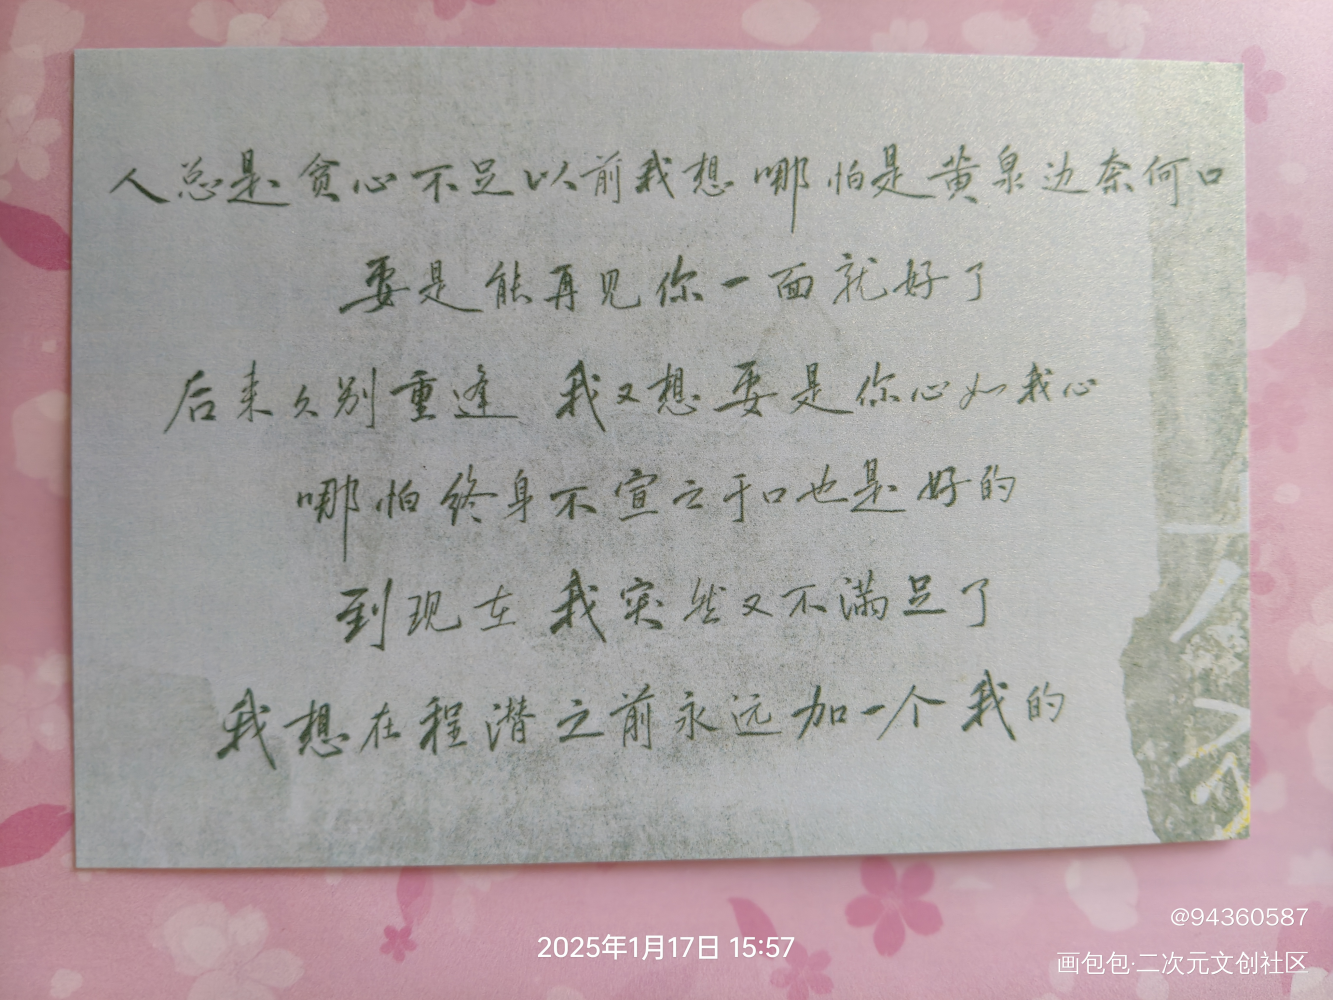 人总是贪心不足以前我想哪怕是黄泉边奈何口
要是能再见你一面就好了
后来久别重逢 我又想要是你心如我心
哪怕终身不宣之于口也是好的
到现在 我突然又不满足了
我想在程潜之前永远加一个 我的
@94360587
2025年1月17日 15:57
画包包·二次元文创社区